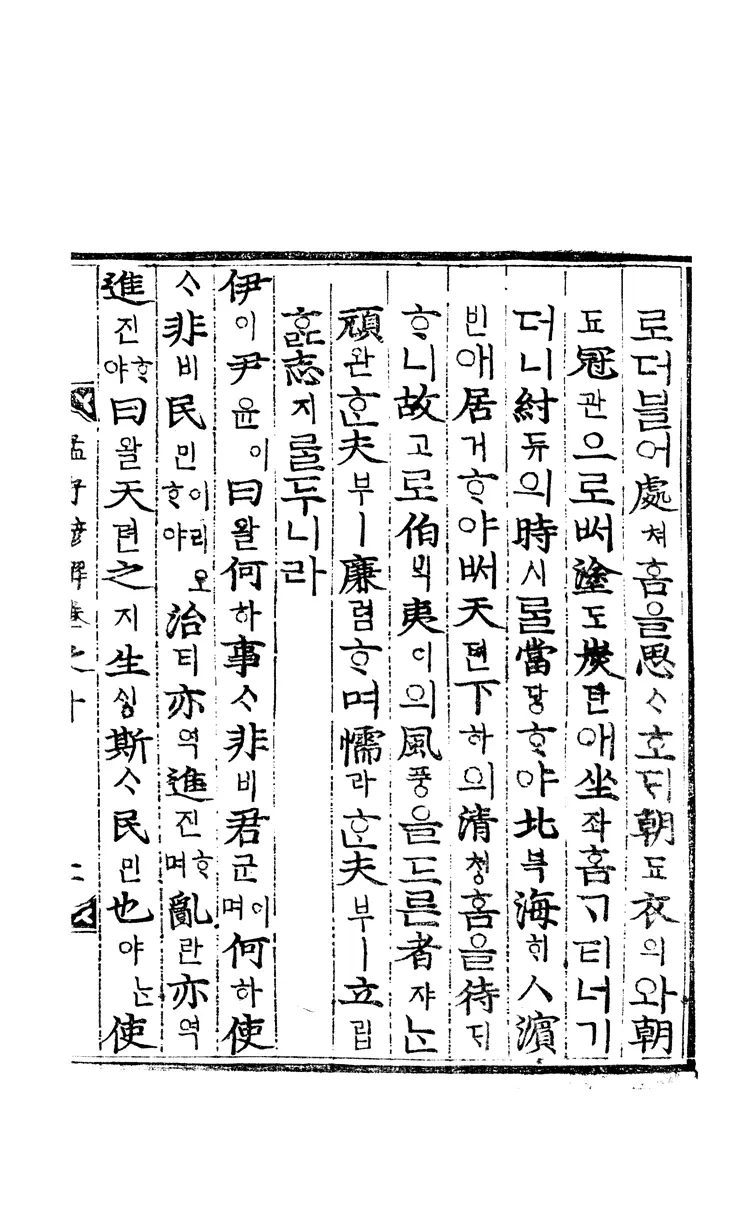 로더블어處쳐홈을思ᄉᆞ호ᄃᆡ朝됴衣의와朝
됴冠관으로ᄡᅥ塗도炭탄애坐좌홈ᄀᆞ티너기
더니紂듀의時시ᄅᆞᆯ當당ᄒᆞ야北부海ᄒᆡㅅ濱
빈애居거ᄒᆞ야ᄡᅥ天텬下하의淸쳥홈을待ᄃᆡ
ᄒᆞ니故고로伯ᄇᆡᆨ夷이의風풍을드른者쟈ᄂᆞᆫ
頑완ᄒᆞᆫ夫부ㅣ廉렴ᄒᆞ며懦라ᄒᆞᆫ夫부ㅣ立립
ᄒᆞᆯ志지ᄅᆞᆯ두니라
伊이尹윤이曰왈何하事ᄉᆞ非비君군이며何하使
ᄉᆞ非비民민이리오ᄒᆞ야治티亦역進진ᄒᆞ며亂란亦역
進진ᄒᆞ야曰왈天텬之지生ᄉᆡᆼ斯ᄉᆞ民민也야ᄂᆞᆫ使
孟子諺解卷之十 二